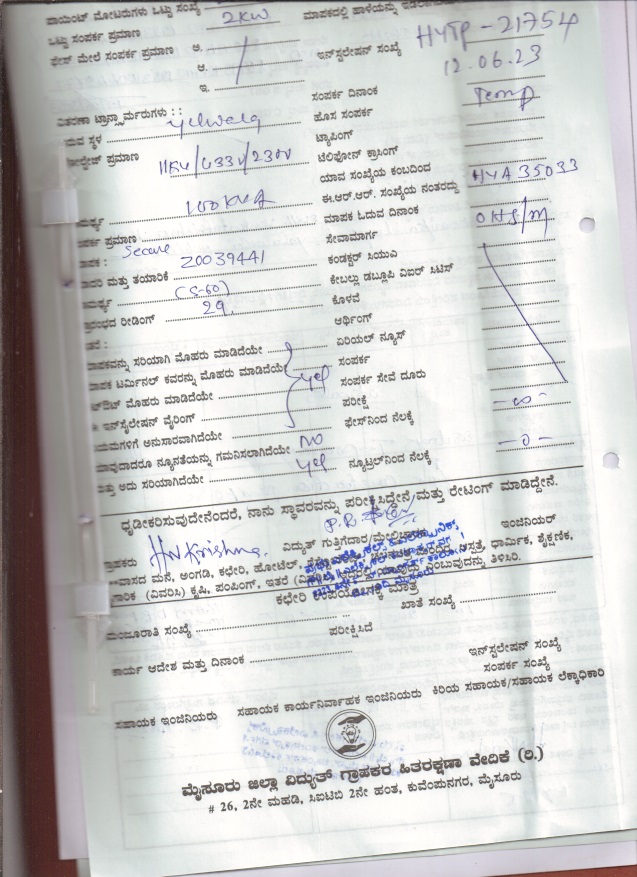 ಪಾಯಿಂಟ್ ಮೋಟರುಗಳು ಒಟ್ಟು ಸಂಖ್ಯೆ
ಒಟ್ಟು ಸಂಪರ್ಕ ಪ್ರಮಾಣ 2KW
ಫೇಸ್ ಮೇಲೆ ಸಂಪರ್ಕ ಪ್ರಮಾಣ ಅ.
ಆ.
ಇ.
ವಿತರಣಾ ಟ್ರಾನ್ಸ್ಫಾರ್ಮರುಗಳು :
ರುವ ಸ್ಥಳ Yelwala
ವೋಲ್ಟೇಜ್ ಪ್ರಮಾಣ 11KV/433V/230V
100KVA
ಪರ್ಕ ಪ್ರಮಾಣ
Secure
ಮತ್ತು ತಯಾರಿಕೆ Z0039441
(5-60)
ರೀಡಿಂಗ್ 29.
ಮಾಪಕದಲ್ಲಿ
ಇನ್‌ಸ್ಟಲೇಷನ್ ಸಂಖ್ಯೆ HYTP-21754
12.06.23
ಸಂಪರ್ಕ ದಿನಾಂಕ
ಹೊಸ ಸಂಪರ್ಕ Temp
ಟ್ಯಾಪಿಂಗ್
ಟೆಲಿಫೋನ್ ಕ್ರಾಸಿಂಗ್
ಯಾವ ಸಂಖ್ಯೆಯ ಕಂಬದಿಂದ
ಈ.ಆರ್.ಆರ್. ಸಂಖ್ಯೆಯ ನಂತರದ್ದು HYA 35033
ಮಾಪಕ ಓದುವ ದಿನಾಂಕ
ಸೇವಾಮಾರ್ಗ OHS/M
ಕಂಡಕ್ಟರ್ ಸಿಯುವಿ
ಕೇಬಲ್ಲು ಡಬ್ಲೂಪಿ ವಿಐರ್ ಸಿಟಿಸ್
ಕೊಳವೆ
ಅರ್ಥಿಂಗ್
ಏರಿಯಲ್ ಫ್ಯೂಸ್
ಸಂಪರ್ಕ
ಸಂಪರ್ಕ ಸೇವೆ ದೂರು
ಪರೀಕ್ಷೆ
ಫೇಸ್‌ನಿಂದ ನೆಲಕ್ಕೆ -∞-
ನ್ಯೂಟ್ರಲ್‌ನಿಂದ ನೆಲಕ್ಕೆ -0-
ಮಾಪಕವನ್ನು ಸರಿಯಾಗಿ ಮೊಹರು ಮಾಡಿದೆಯೇ
ಮಾಪಕ ಟರ್ಮಿನಲ್ ಕವರನ್ನು ಮೊಹರು ಮಾಡಿದೆಯೇ
ಮೊಹರು ಮಾಡಿದೆಯೇ yes
ಇನ್‌ಸೈಲೇಷನ್ ವೈರಿಂಗ್
ನಿಯಮಗಳಿಗೆ ಅನುಸಾರವಾಗಿದೆಯೇ
ಯಾವುದಾದರೂ ನ್ಯೂನತೆಯನ್ನು ಗಮನಿಸಲಾಗಿದೆಯೇ NO
ಮತ್ತು ಅದು ಸರಿಯಾಗಿದೆಯೇ yes
ಧೃಡೀಕರಿಸುವುದೇನೆಂದರೆ, ನಾನು ಸ್ಥಾವರವನ್ನು ಪರೀಕ್ಷಿಸಿದ್ದೇನೆ ಮತ್ತು ರೇಟಿಂಗ್ ಮಾಡಿದ್ದೇನೆ.
ಗ್ರಾಹಕರು HN Krishna. ವಿದ್ಯುತ್ ಗುತ್ತಿಗೆದಾರ/ಮೇಲ್ವಿಚಾರಕ ಇಂಜಿನಿಯರ್
ವಾಸದ ಮನೆ, ಅಂಗಡಿ, ಕಛೇರಿ, ಹೋಟೆಲ್, ಆಸ್ಪತ್ರೆ, ಧಾರ್ಮಿಕ, ಶೈಕ್ಷಣಿಕ,
(ವಿವರಿಸಿ) ಕೃಷಿ, ಪಂಪಿಂಗ್, ಇತರೆ ಎಂಬುವುದನ್ನು ತಿಳಿಸಿರಿ.
ಕಛೇರಿ ಉಪಯೋಗಕ್ಕೆ ಮಾತ್ರ
ಮಂಜೂರಾತಿ ಸಂಖ್ಯೆ ಖಾತೆ ಸಂಖ್ಯೆ
ಪರೀಕ್ಷಿಸಿದೆ
ಕಾರ್ಯ ಆದೇಶ ಮತ್ತು ದಿನಾಂಕ ಇನ್‌ಸ್ಟಲೇಷನ್ ಸಂಖ್ಯೆ
ಸಂಪರ್ಕ ಸಂಖ್ಯೆ
ಸಹಾಯಕ ಇಂಜಿನಿಯರು ಸಹಾಯಕ ಕಾರ್ಯನಿರ್ವಾಹಕ ಇಂಜಿನಿಯರು ಕಿರಿಯ ಸಹಾಯಕ/ಸಹಾಯಕ ಲೆಕ್ಕಾಧಿಕಾರಿ
ಮೈಸೂರು ಜಿಲ್ಲಾ ವಿದ್ಯುತ್ ಗ್ರಾಹಕರ ಹಿತರಕ್ಷಣಾ ವೇದಿಕೆ (ರಿ.)
# 26, 2ನೇ ಮಹಡಿ, ಸಿಐಟಿಬಿ 2ನೇ ಹಂತ, ಕುವೆಂಪುನಗರ, ಮೈಸೂರು